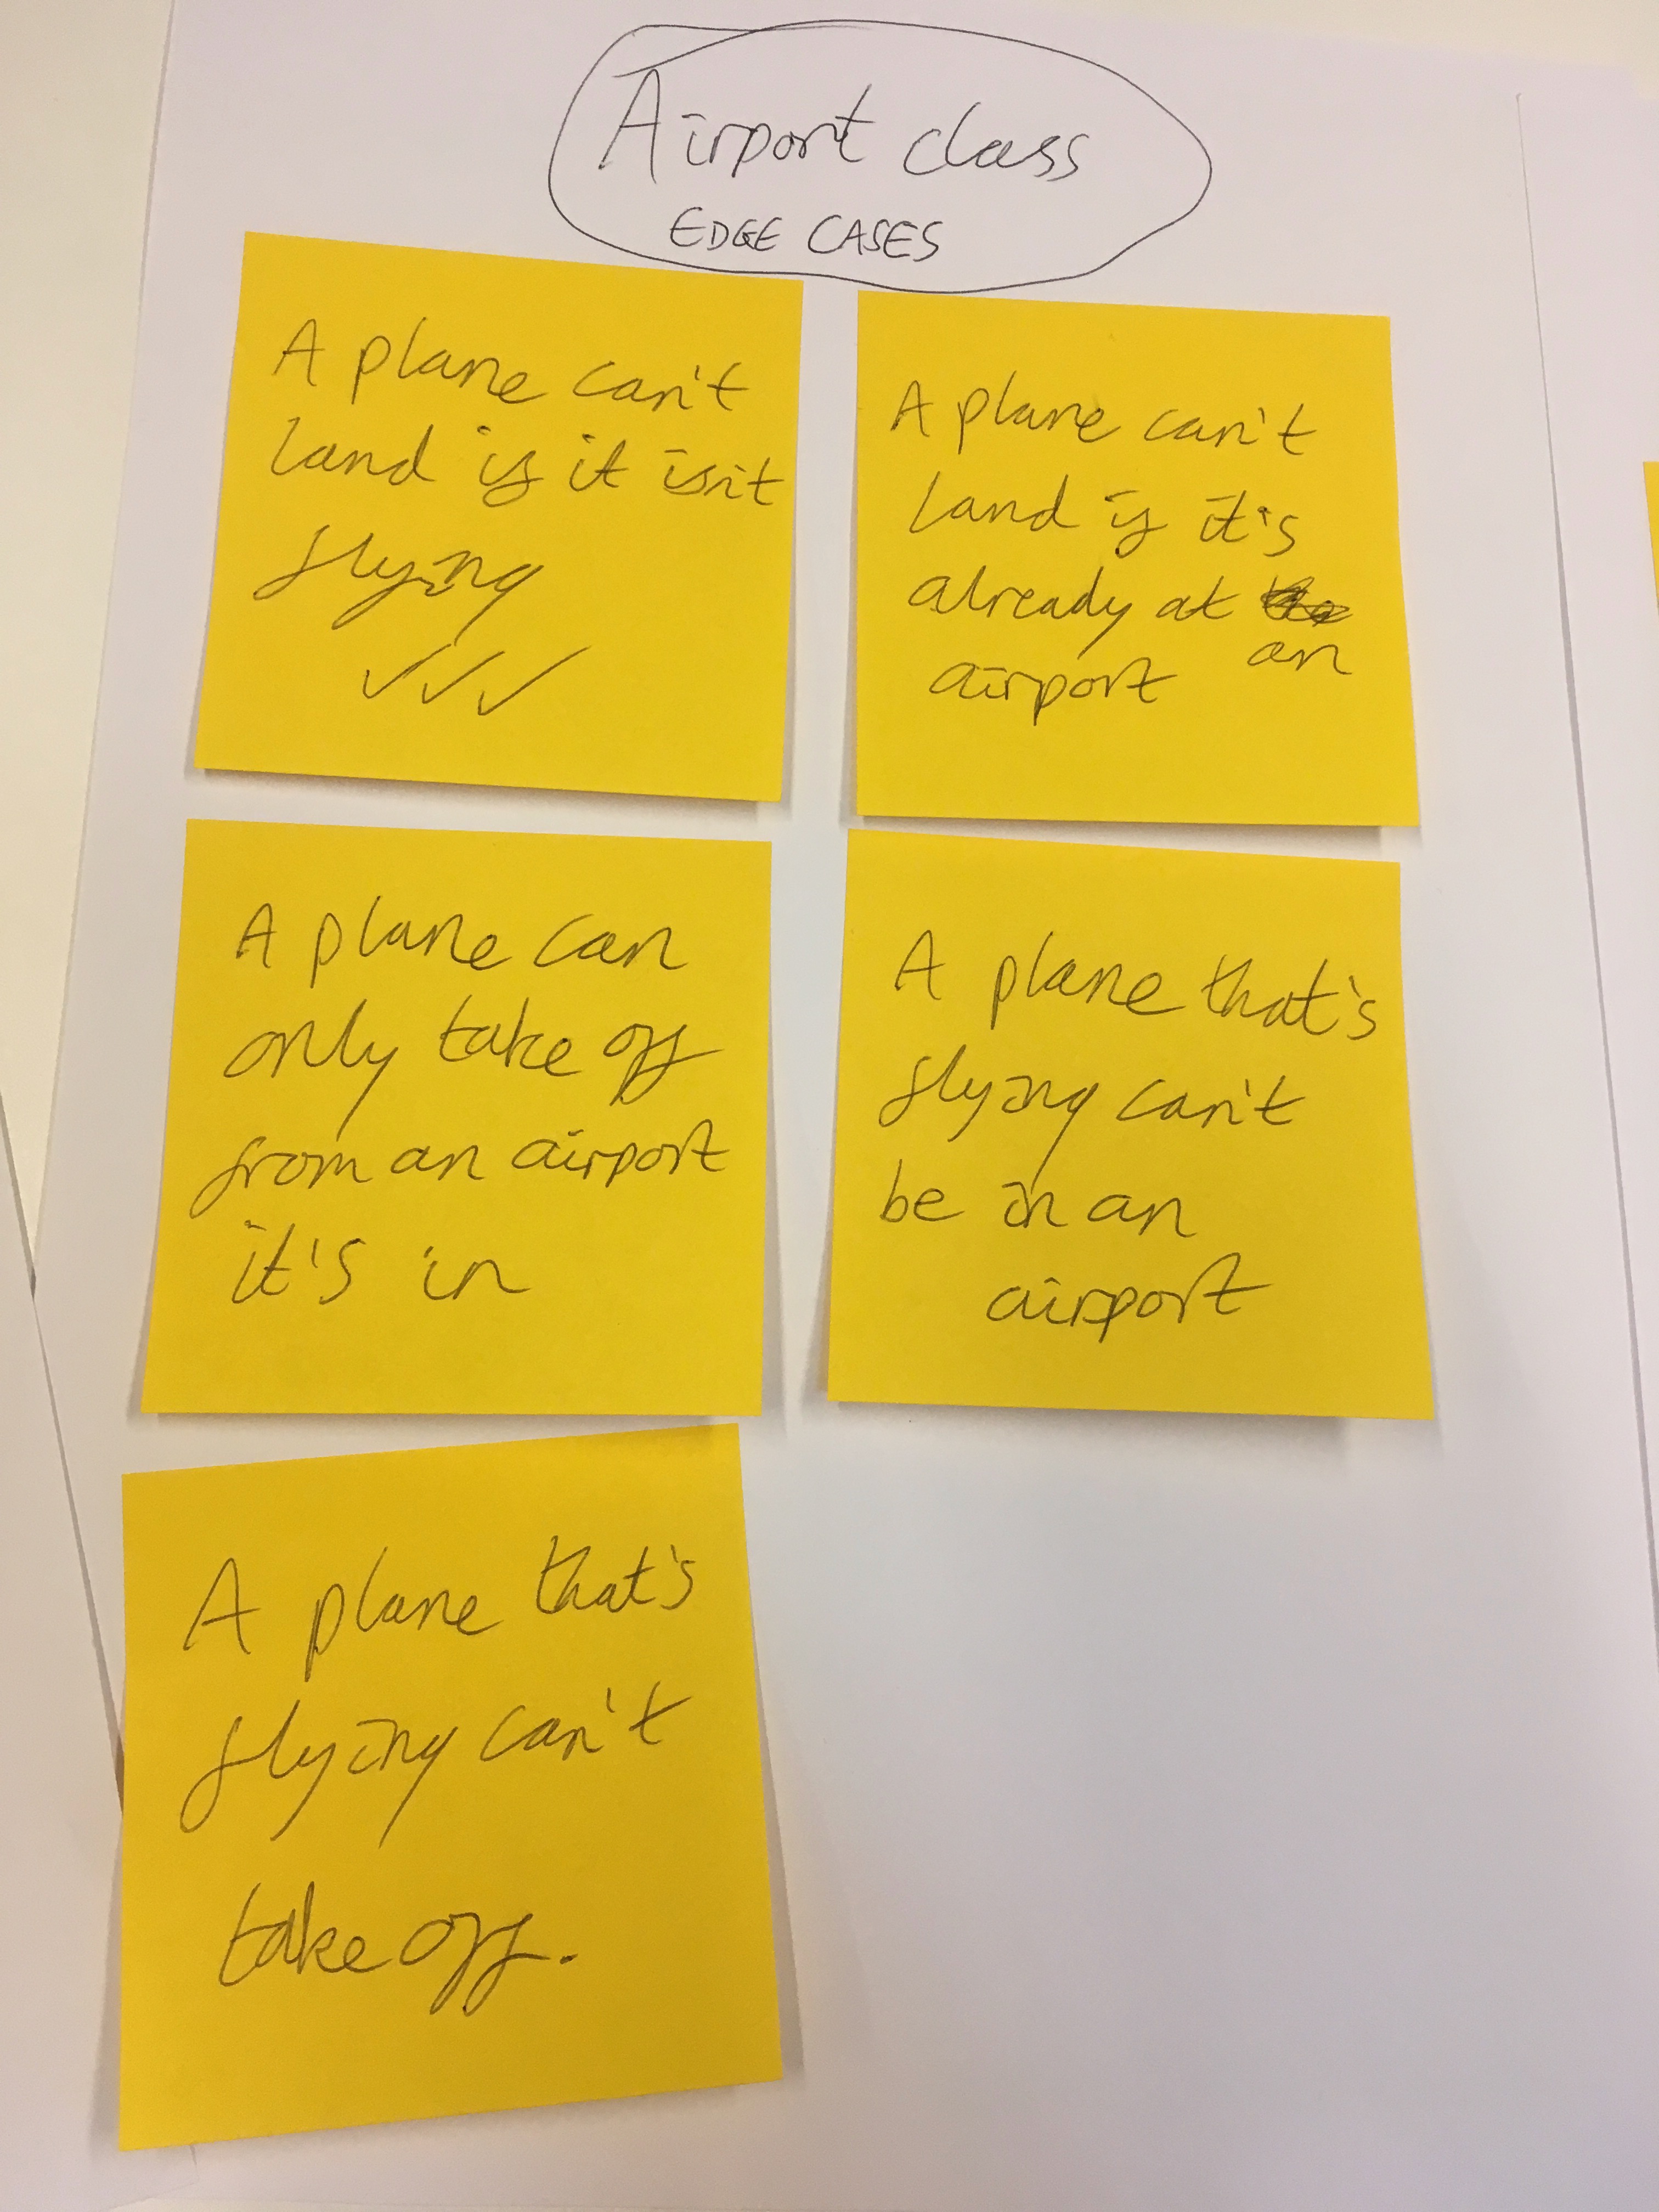 Airport class
EDGE CASES
A plane can't
land if it isn't
flying
✓✓✓
A plane can't
land if it's
already at
an
airport
A plane can
only take off
from an airport
it's in
A plane that's
flying can't
be in an
airport
A plane that's
flying can't
take off.